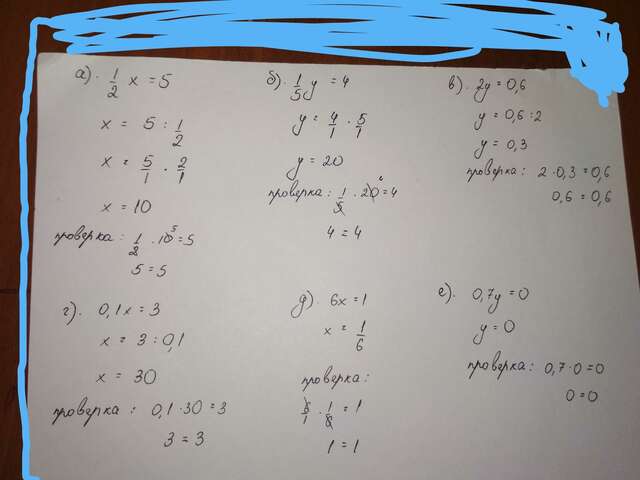 а). 1/2 x = 5
x = 5 : 1/2
x = 5/1 · 2/1
x = 10
проверка: 1/2 · 10 5 = 5
5 = 5
б). 1/5 y = 4
y = 4/1 · 5/1
y = 20
проверка: 1/5 · 20 = 4
4 = 4
в). 2y = 0,6
y = 0,6 : 2
y = 0,3
проверка: 2 · 0,3 = 0,6
0,6 = 0,6
г). 0,1x = 3
x = 3 : 0,1
x = 30
проверка: 0,1 · 30 = 3
3 = 3
д). 6x = 1
x = 1/6
проверка:
6/1 · 1/6 = 1
1 = 1
е). 0,7y = 0
y = 0
проверка: 0,7 · 0 = 0
0 = 0